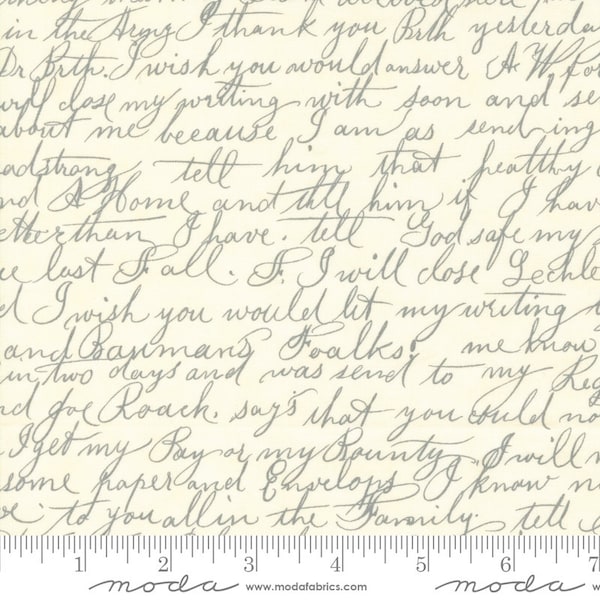 in the Army I thank you Brth yesterda
Dr Brth. I wish you would answer A W for
will close my writing with soon and se
about me because I am as send ing
adstrong tell him that healthy
nd A Home and tell him if I hav
etter than I have. tell God safe my
ce last Fall. F. I will close Lechle
d I wish you would lit my writing
and Bauman's Foalks. me know
in two days and was send to my Reg
nd Joe Roack. say's that you could no
I get my Pay or my Bounty. I will
some paper and Envelops I know n
ve to you all in the Family. tell
1 2 3 4 5 6 7
moda www.modafabrics.com moda www.mod